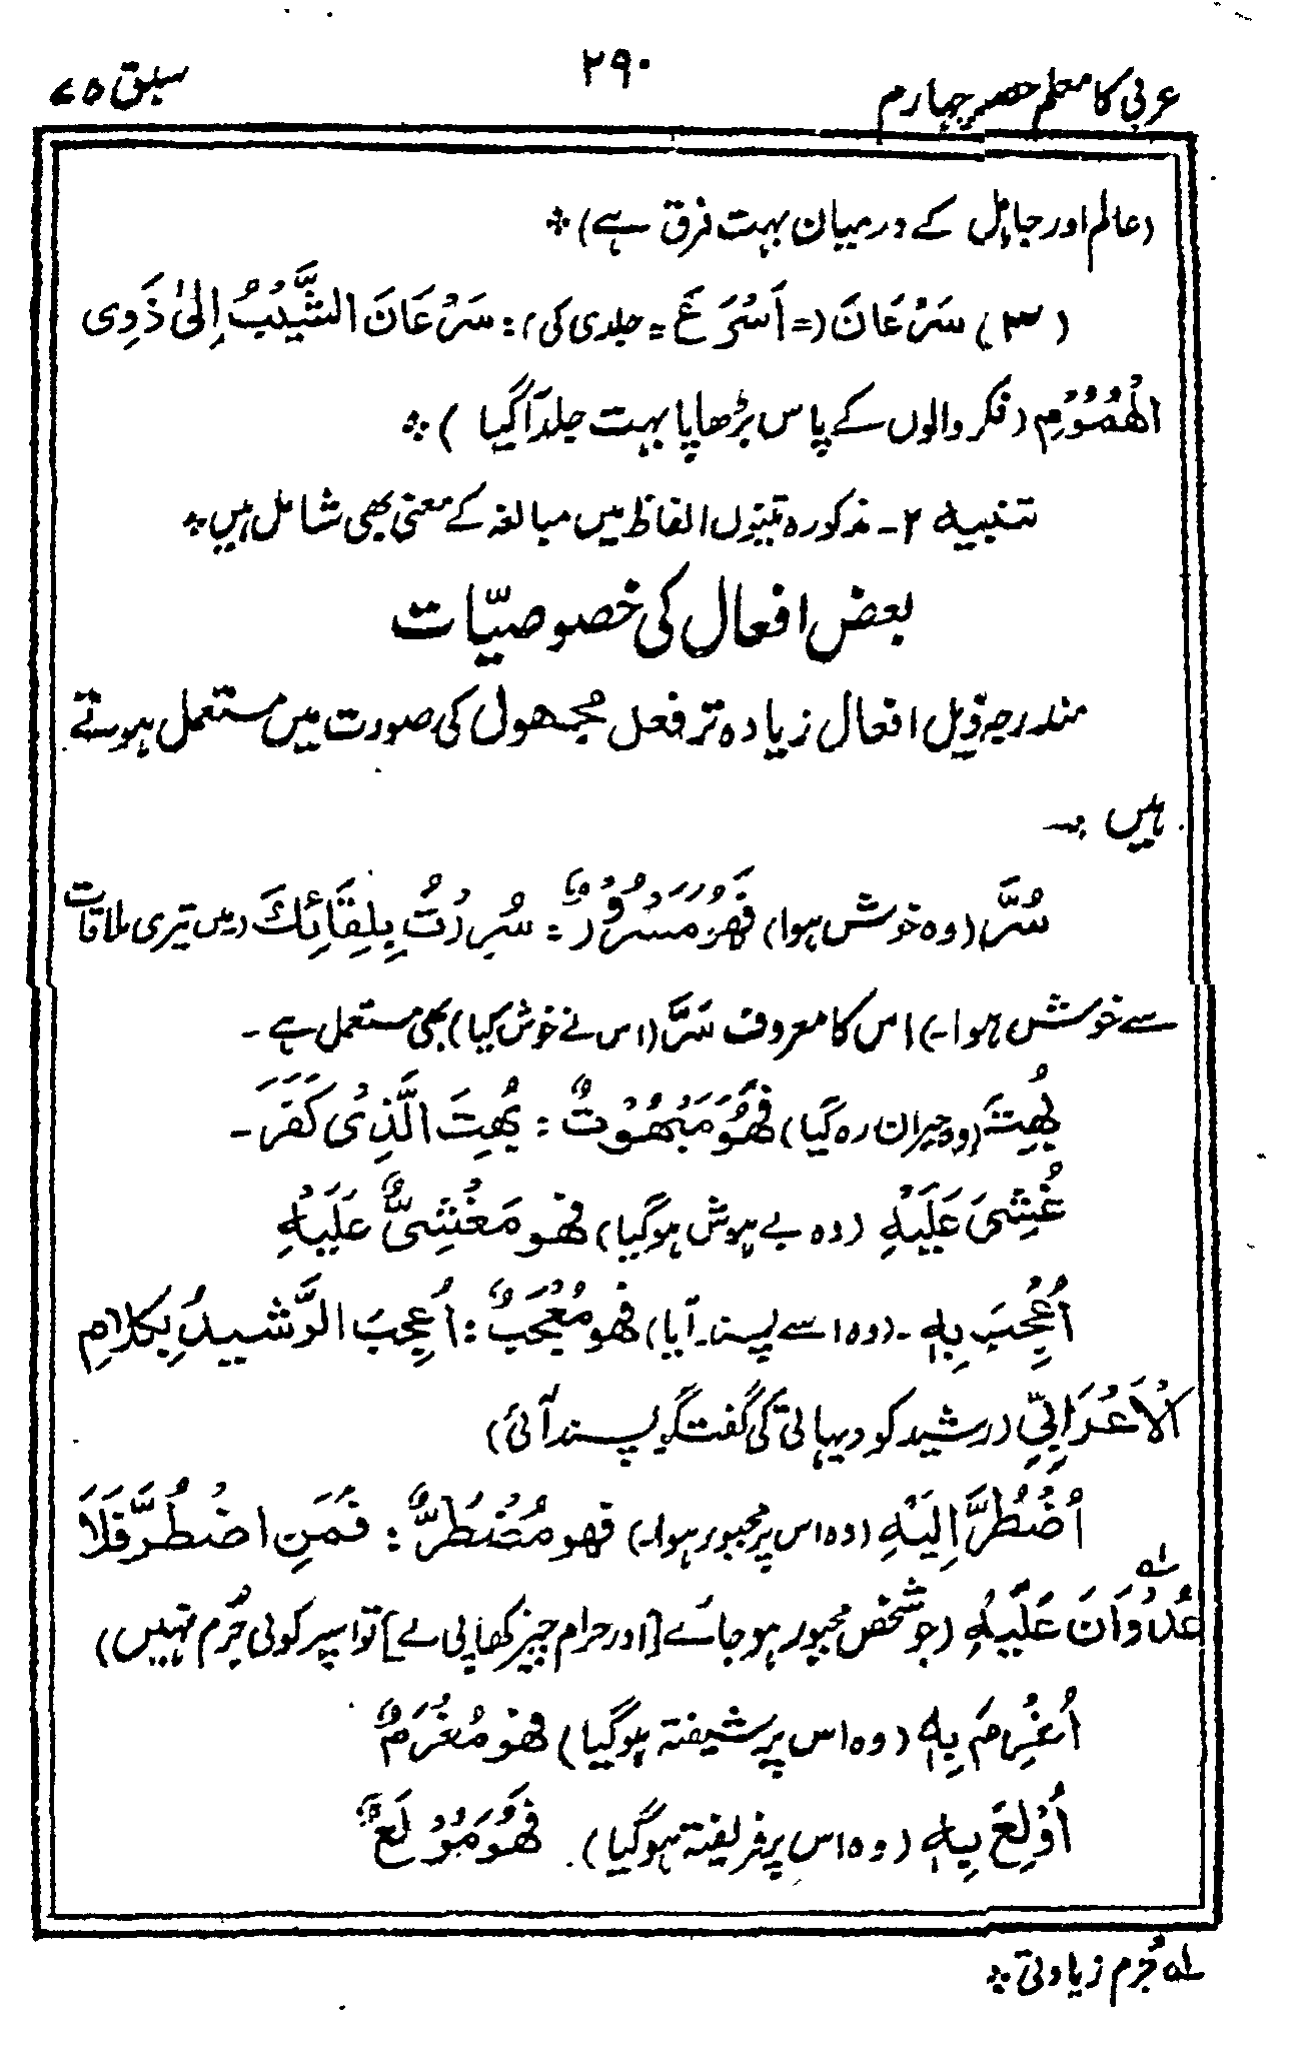 عربی کا معلم حصہ چہارم ۲۹۰ سبق ۷۵
(عالم اور جاہل کے درمیان بہت فرق ہے) ÷
(۳) سَرْعَانَ (= اَسْرَعَ = جلدی کی): سَرْعَانَ الشَّيْبُ اِلىٰ ذَوِى
الْهُمُوْمِ (فکر والوں کے پاس بڑھاپا بہت جلد آ گیا) ÷
تنبیہ ۲ - مذکورہ تینوں الفاظ میں مبالغہ کے معنی بھی شامل ہیں ÷
بعض افعال کی خصوصیّات
مندرجہ ذیل افعال زیادہ تر فعل مجہول کی صورت میں مستعمل ہوتے
ہیں :-
سُرَّ (وہ خوش ہوا) فَهُوَ مَسْرُوْرٌ : سُرِرْتُ بِلِقَائِكَ (میں تیری ملاقات
سے خوش ہوا -) اس کا معروف سَرَّ (اس نے خوش کیا) بھی مستعمل ہے -
بُهِتَ (وہ حیران رہ گیا) فَهُوَ مَبْهُوْتٌ : بُهِتَ الَّذِىْ كَفَرَ -
غُشِىَ عَلَيْهِ (وہ بے ہوش ہو گیا) فهو مَغْشِىٌّ عَلَيْهِ
اُعْجِبَ بِهٖ - (وہ اسے پسند آیا) فهو مُعْجَبٌ : اُعْجِبَ الرَّشيدُ بِكلامِ
الْاَعْرَابِيِّ (رشید کو دیہاتی کی گفتگو پسند آئی)
اُضْطُرَّ اِلَيْهِ (وہ اس پر مجبور ہوا -) فهو مُضْطَرٌّ : فَمَنِ اضْطُرَّ فَلَا
عُدْوَانَ عَلَيْهِ ؎۱ (جو شخص مجبور ہو جائے [اور حرام چیز کھا پی لے] تو اسپر کوئی جُرم نہیں)
اُغْرِمَ بِهٖ (وہ اس پر شیفتہ ہو گیا) فهو مُغْرَمٌ
اُوْلِعَ بِهٖ (وہ اس پر فریفتہ ہو گیا) . فَهُوَ مُوْلَعٌ
؎۱ جُرم زیادتی ÷